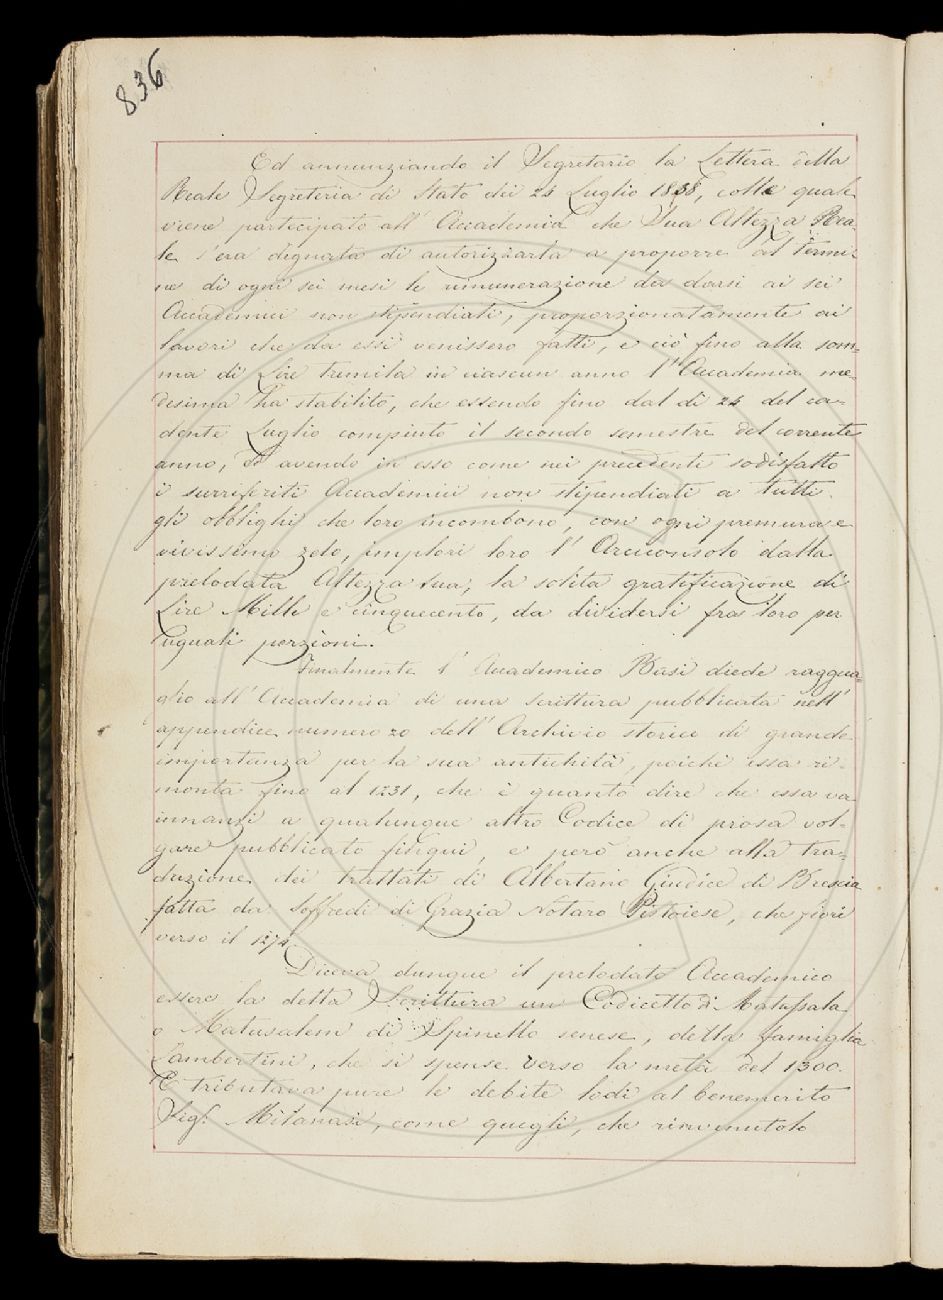 836
Ed annunziando il Segretario la Lettera della
Reale Segreteria di Stato dei 24 Luglio 1838, colla quale
viene participato all' Accademia che Sua Altezza Rea-
le s'era dignata di autorizzarla a proporre al termi-
ne di ogni sei mesi le rimunerazione da darsi ai sei
Accademici non stipendiati, proporzionatamente ai
lavori che da essi venissero fatti, e ciò fino alla som-
ma di Lire tremila in ciascun anno l'Accademia me-
desima ha stabilito, che essendo fino dal dì 24 del ca-
dente Luglio compiuto il secondo semestre del corrente
anno, ed avendo in esso come nei precedenti sodisfatto
i surriferiti Accademici non stipendiati a tutti
gli obblighi che loro incombono, con ogni premura e
vivissimo zelo, implori loro l' Arciconsolo dalla
prelodata Altezza Sua, la solita gratificazione di
Lire Mille e cinquecento, da dividersi fra loro per
uguali porzioni.
Finalmente l' Accademico Busi diede raggua-
glio all' Accademia di una scrittura pubblicata nell'
appendice numero 20 dell' Archivio storico di grande
importanza per la sua antichità, poichè essa ri-
monta fino al 1231, che è quanto dire che essa va
innanzi a qualunque altro Codice di prosa vol-
gare pubblicato finqui, e però anche alla tra-
duzione dei trattati di Albertano Giudice di Brescia
fatta da Soffredi di Grazia Notaro Pistoiese, che fiorì
verso il 1274.
Diceva dunque il prelodato Accademico
essere la detta Scrittura un Codicetto di Matassala
o Matusalem di Spinello senese, della famiglia
Lambertini, che si spense verso la metà del 1300.
E tributava pure le debite lodi al benemerito
Sig. Milanesi, come quegli, che rinvenutolo